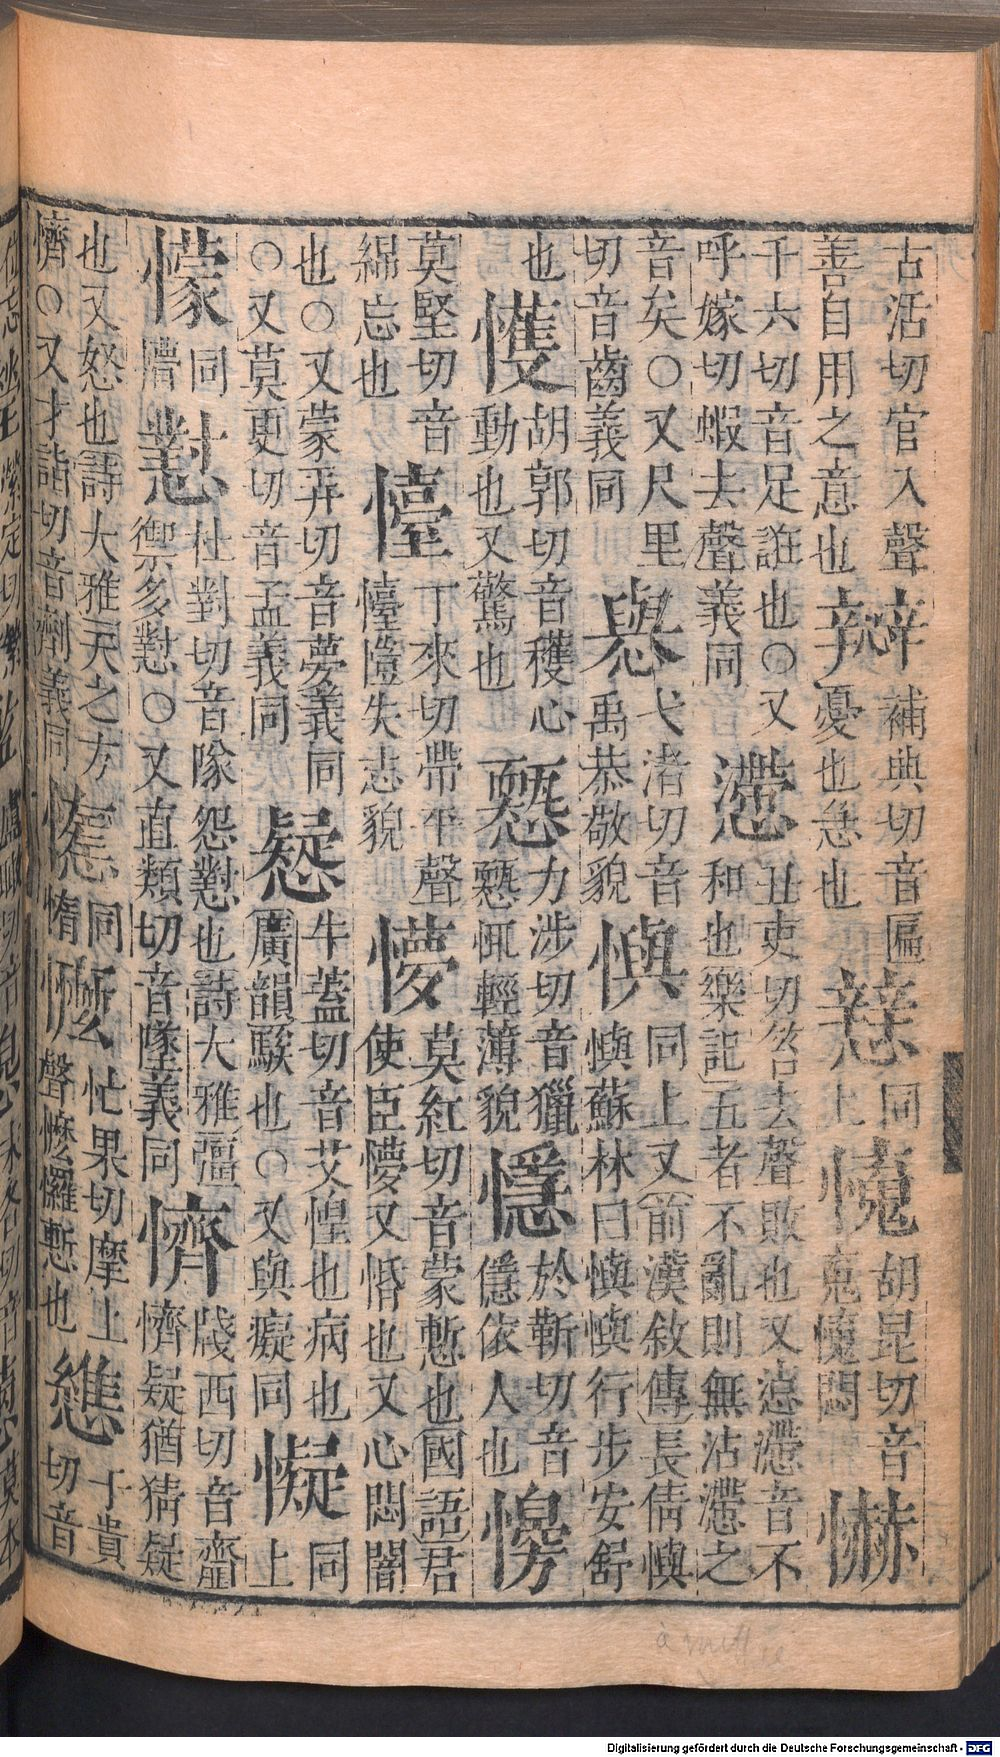 古活切官入聲善自用之意也 補典切音匾憂也急也 同上 胡昆切音䰟 悶 懗
千六切音足誑也○又呼嫁切蝦去聲義同 懘 丑吏切笞去聲敗也又惉懘音不和也樂記五者不亂則無沾懘之
音矣○又尺里切音齒義同 㦛 弋渚切音禹恭敬貌 懙 同上又前漢敘傳長倩懙懙蘇林曰懙懙行步安舒
也 㦜 胡郭切音穫心動也又驚也 力涉切音獵 輕薄貌 於靳切音 依人也
莫堅切音綿忘也 懛 丁來切帶平聲懛 失志貌 懜 莫紅切音蒙慙也國語君使臣懜又惛也又心悶闇
也○又蒙弄切音夢義同○又莫更切音孟義同 牛蓋切音艾惶也病也廣韻騃也○又與癡同 懝 同上
懞 同懵 懟 杜對切音隊怨懟也詩大雅彊禦多懟○又直類切音墜義同 懠 牋西切音齏懠疑猶猜疑
也又怒也詩大雅天之方懠○又才詣切音劑義同 同惰 懡 忙果切摩上聲懡㦬慙也 子貴切音
Digitalisierung gefördert durch die Deutsche Forschungsgemeinschaft - DFG